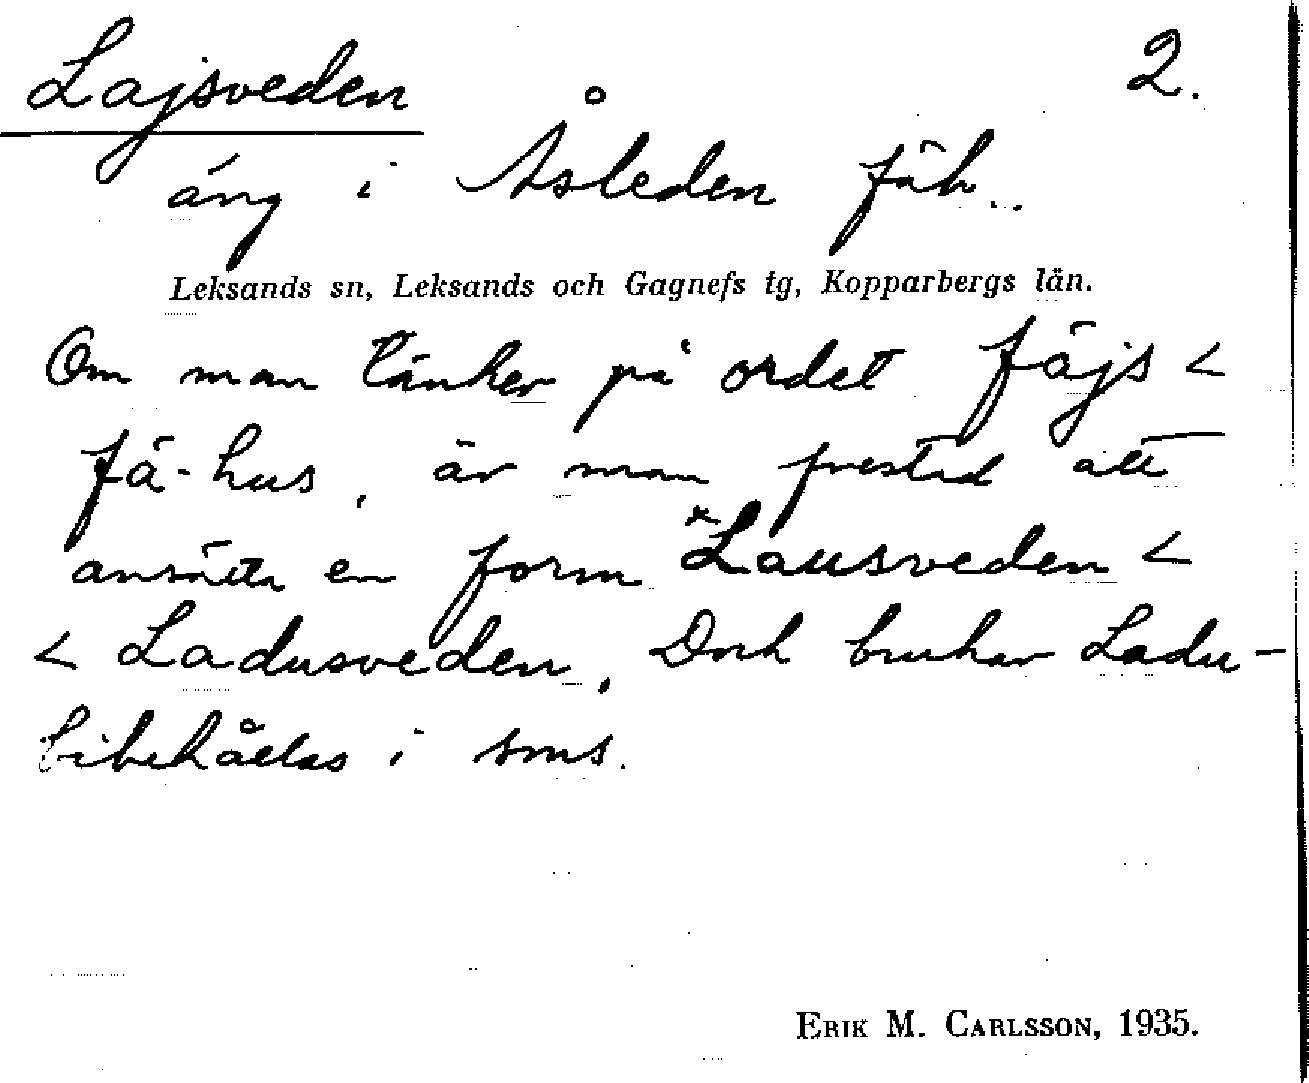 Lajsveden 2.
äng i Åsleden fäb..
Leksands sn, Leksands och Gagnefs tg, Kopparbergs län.
Om man tänker på ordet fäjs <
fä-hus, är man frestad att
ansätta en form *Lausveden <
< Ladusveden. Dock brukar Ladu-
bibehållas i sms.
ERIK M. CARLSSON, 1935.